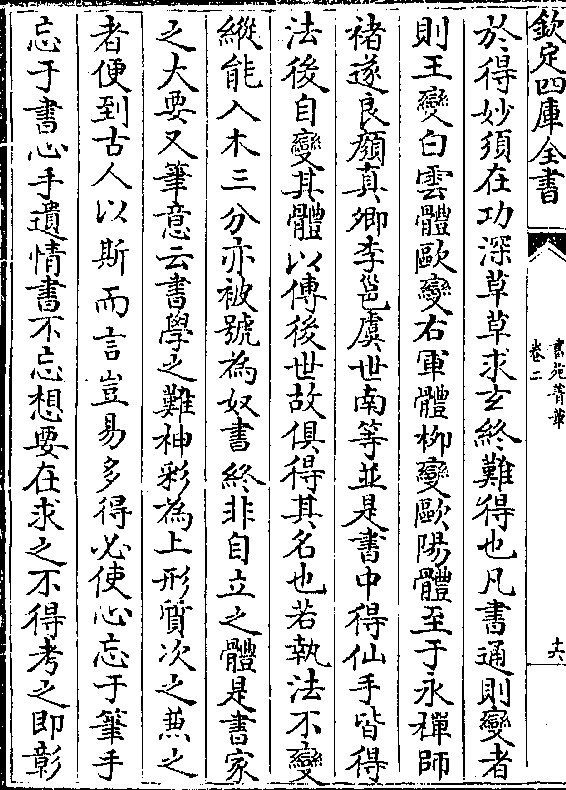 欽定四庫全書
書苑菁華
卷二
十六
於得妙須在功深草草求玄終難得也凡書通則變者
則王變白雲體歐變右軍體柳變歐陽體至于永禪師
褚遂良顏真卿李邕虞世南等並是書中得仙手皆得
法後自變其體以傳後世故俱得其名也若執法不變
縱能入木三分亦被號為奴書終非自立之體是書家
之大要又筆意云書學之難神彩為上形質次之兼之
者便到古人以斯而言豈易多得必使心忘于筆手
忘于書心手遺情書不忘想要在求之不得考之即彰